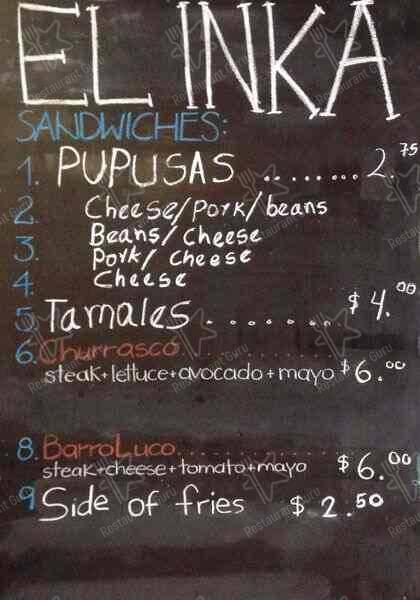 EL INKA
SANDWICHES:
1. PUPUSAS ......... 2.75
2. Cheese/Pork/beans
3. Beans/Cheese
Pork/Cheese
4. Cheese
5. Tamales . . . . . . . $4.00
6. Churrasco
steak+lettuce+avocado+mayo $6.00
8. BarroLuco
steak+cheese+tomato+mayo $6.00
9 Side of fries $2.50
Restaurant Guru